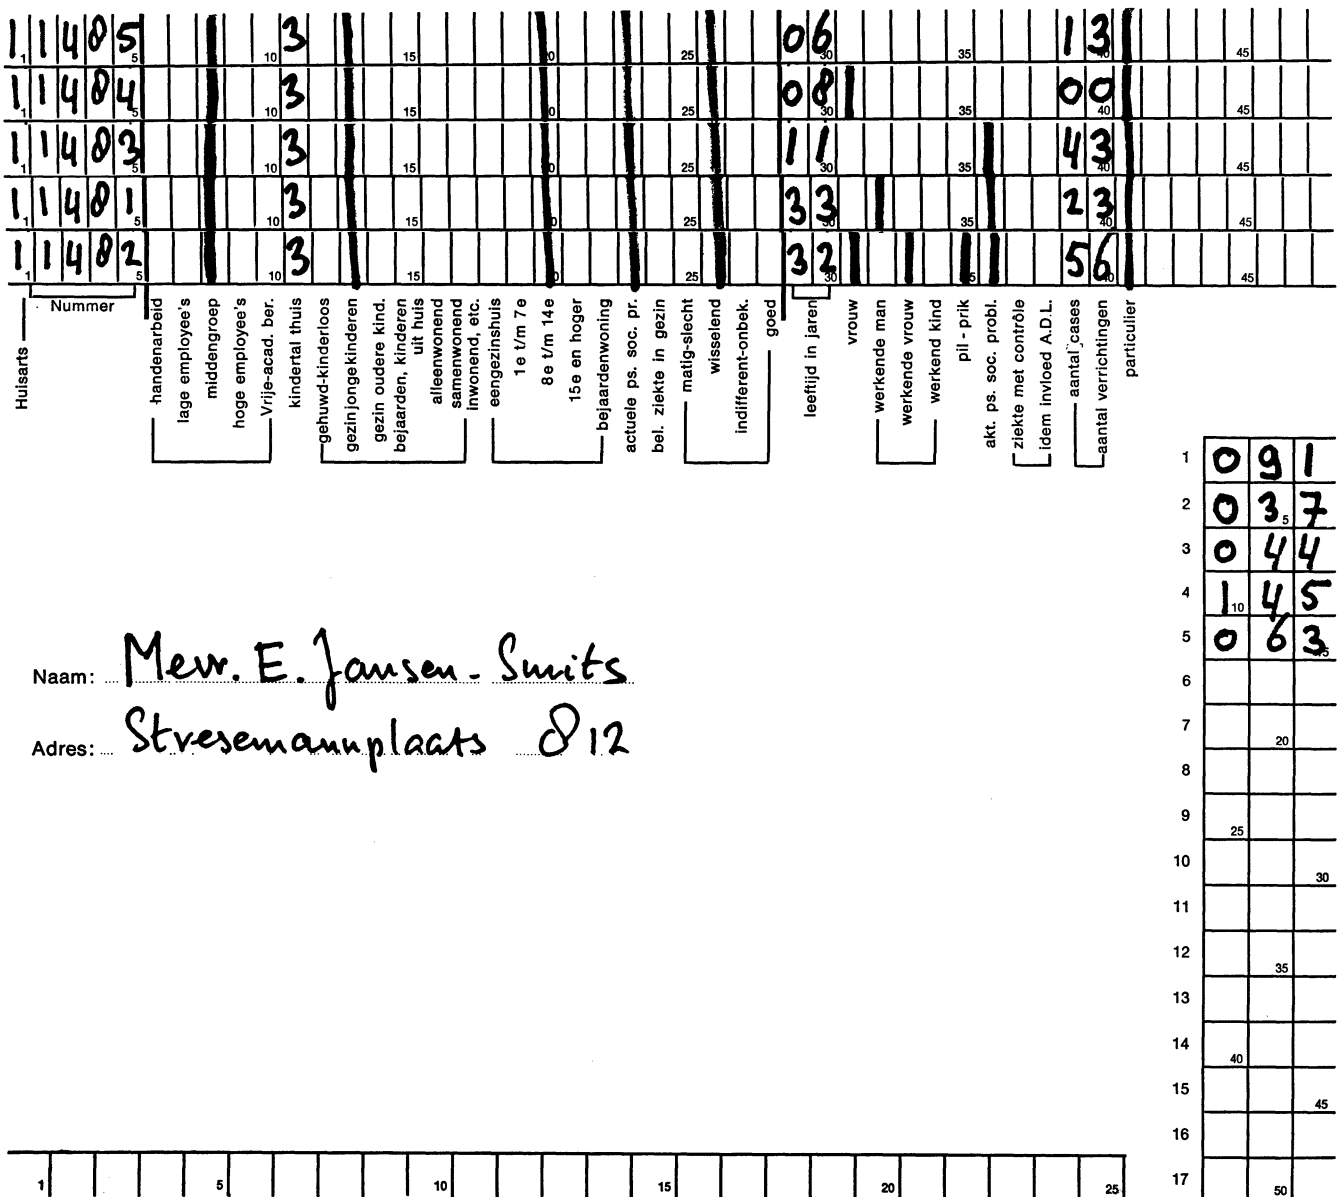 1 1 4 8 5 3 0 6 1 3
1 5 10 15 20 25 30 35 40 45
1 1 4 8 4 3 0 8 0 0
1 5 10 15 20 25 30 35 40 45
1 1 4 8 3 3 1 1 4 3
1 5 10 15 25 30 35 40 45
1 1 4 8 1 3 3 3 2 3
1 5 10 15 20 25 30 35 40 45
1 1 4 8 2 3 3 2 5 6
1 5 10 15 20 25 30 35 40 45
Huisarts
Nummer
handenarbeid
lage employee's
middengroep
hoge employee's
Vrije-acad. ber.
kindertal thuis
gehuwd-kinderloos
gezin jonge kinderen
gezin oudere kind.
bejaarden, kinderen
uit huis
alleenwonend
samenwonend
inwonend, etc.
eengezinshuis
1e t/m 7e
8e t/m 14e
15e en hoger
bejaardenwoning
actuele ps. soc. pr.
bel. ziekte in gezin
matig-slecht
wisselend
indifferent-onbek.
goed
leeftijd in jaren
vrouw
werkende man
werkende vrouw
werkend kind
pil - prik
akt. ps. soc. probl.
ziekte met contrôle
idem invloed A.D.L.
aantal cases
aantal verrichtingen
particulier
1 0 9 1
2 0 3 5 7
3 0 4 4
4 1 10 4 5
5 0 6 3 15
6
7
20
8
9
25
10
30
11
12
35
13
14
40
15
45
16
17
50
Naam: Mevr. E. Jansen - Smits
Adres: Stresemannplaats 812
1 5 10 15 20 25